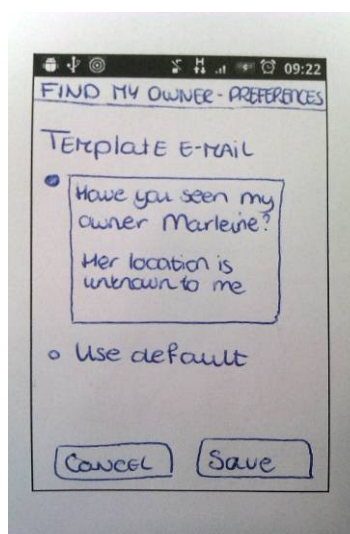 09:22
FIND MY OWNER - PREFERENCES
TEMPLATE E-MAIL
Have you seen my
owner Marleine?
Her location is
unknown to me
Use default
CANCEL
Save